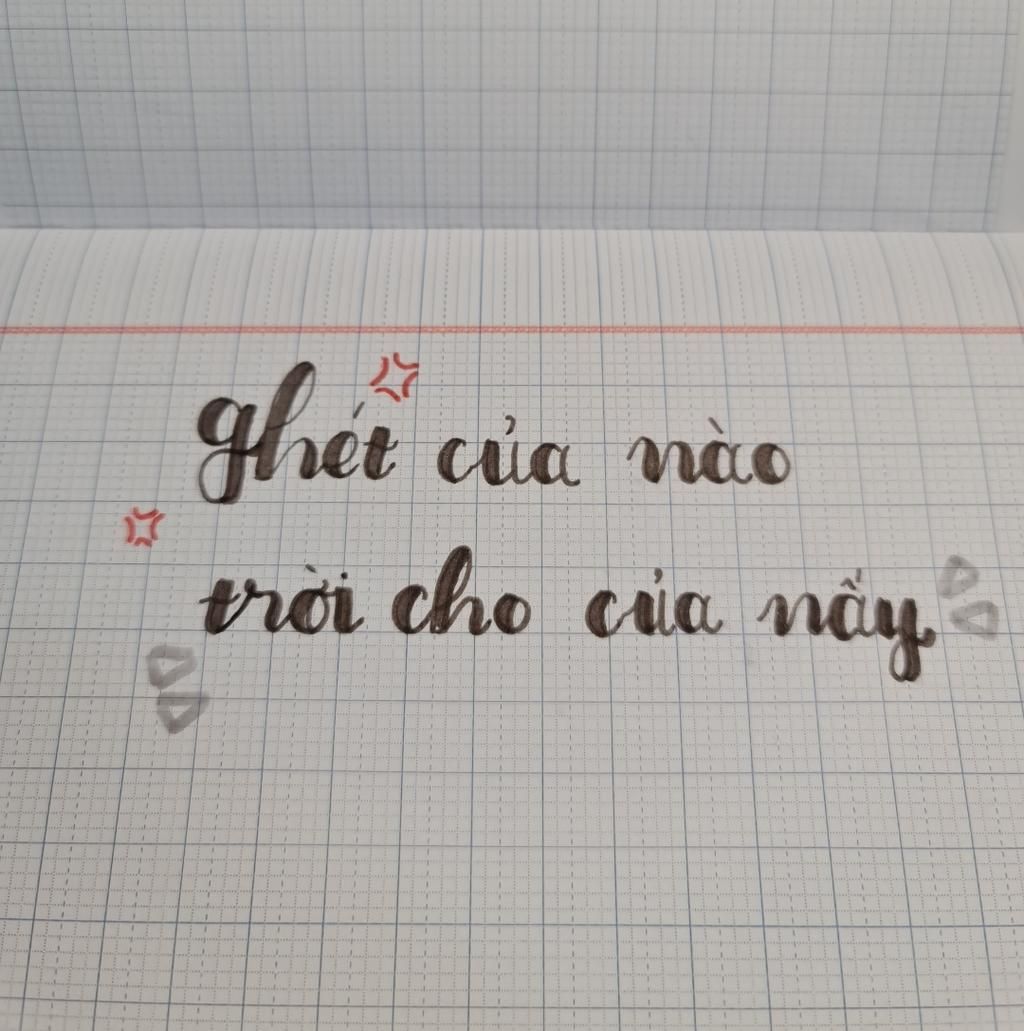 ghét của nào
trời cho của nấy